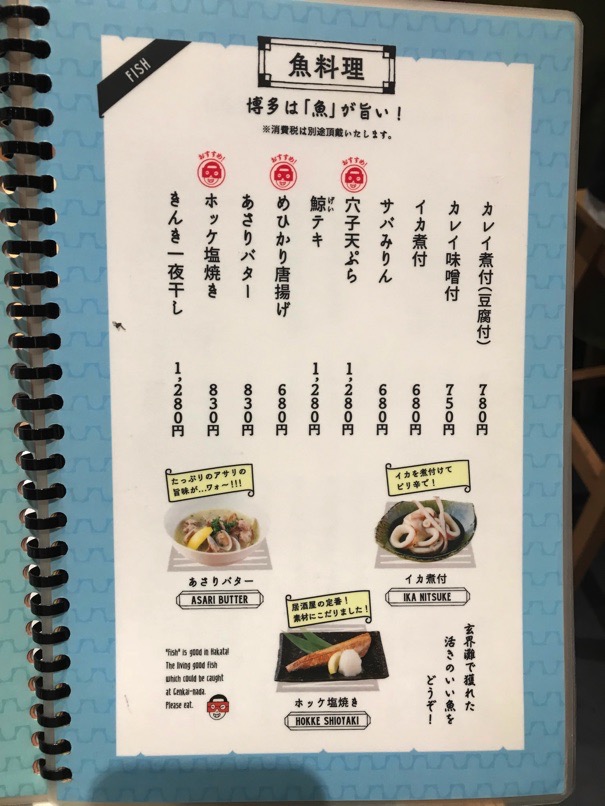 FISH
魚料理
博多は「魚」が旨い！
※消費税は別途頂戴いたします。
カレイ煮付(豆腐付) 780円
カレイ味噌付 750円
イカ煮付 680円
サバみりん 680円
おすすめ!
穴子天ぷら 1,280円
鯨テキ 1,280円
げい
おすすめ!
めひかり唐揚げ 680円
あさりバター 830円
おすすめ!
ホッケ塩焼き 830円
きんき一夜干し 1,280円
たっぷりのアサリの
旨味が…ワォ〜!!!
あさりバター
ASARI BUTTER
イカを煮付けて
ピリ辛で！
イカ煮付
IKA NITSUKE
居酒屋の定番！
素材にこだりました！
ホッケ塩焼き
HOKKE SHIOTAKI
"fish" is good in Hakata!
The living good fish
which could be caught
at Genkai-nada.
Please eat.
玄界灘で獲れた
活きのいい魚を
どうぞ！